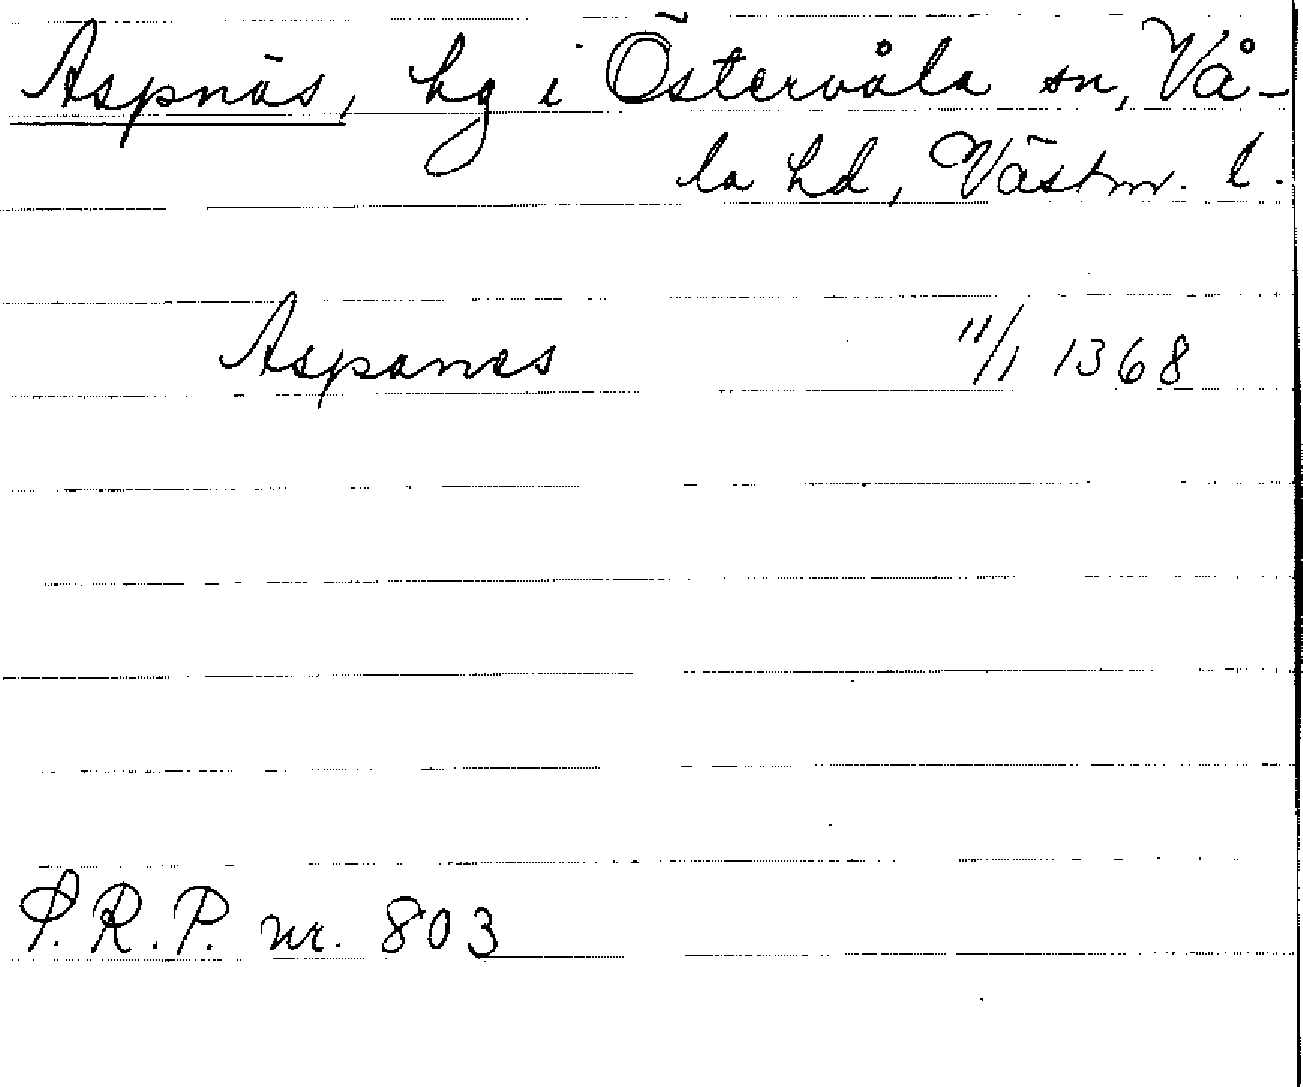 Aspnäs, hg i Östervåla sn, Vå-
la hd, Västm. l.
Aspanes 11/1 1368
S.R.P. nr. 803